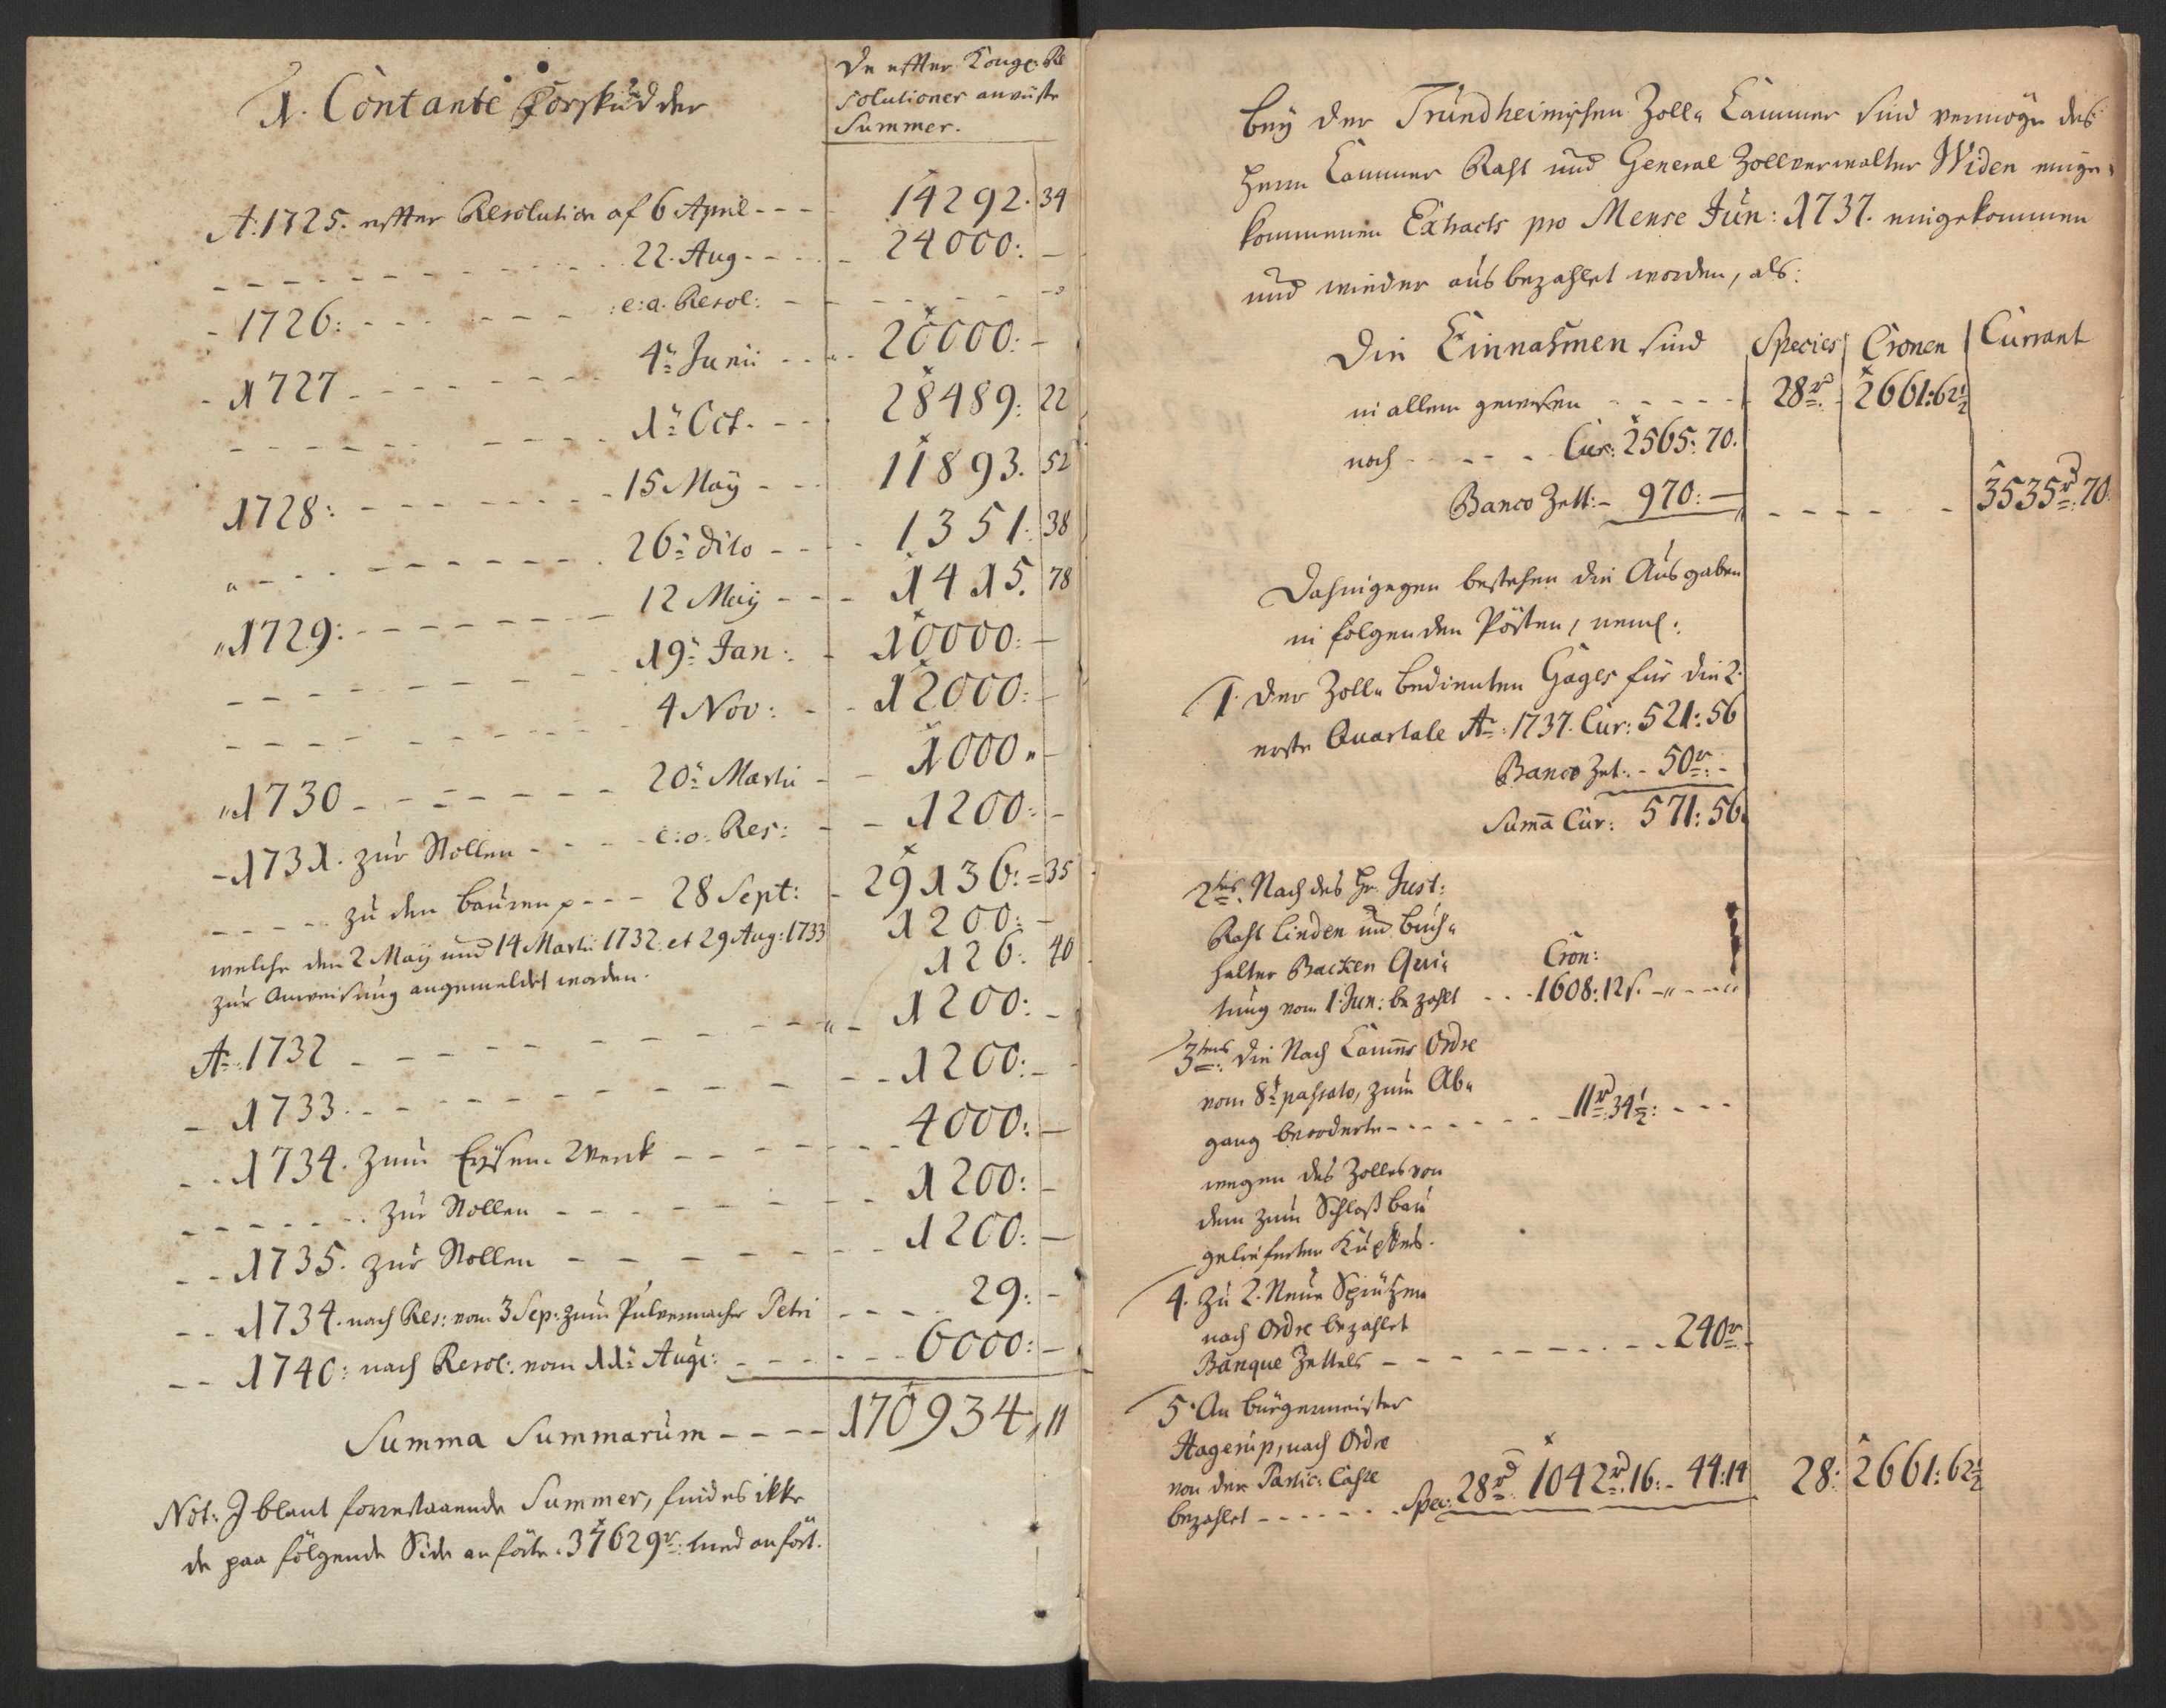 1. Contante Forskudder
De effter Konge: Re
solutioner anviiste
Summer.
Ao: 1725. effter Resolution af 6 April - - - 14292. 34
- - - - - - 22. Aug - - - - 24000: -
- 1726: - - - - - - e: a. Resol: - - - - - -
- 1727 - - - - - - 4ten Junii - - - - 20000: -
- - - - - - 1te Oct. - - - 28489: 22
1728: - - - - - - 15 Maÿ - - - 11893. 52
" - - - - - - 26te dito - - - 1351: 38
" 1729: - - - - - - 12 Maÿ - - - 1415. 78
- - - - - - 19te Jan: - 10000: -
- - - - - - 4 Nov: - - 12000: -
" 1730 - - - - - - 20te Martii - - 1000 " -
- 1731. zur Stollen - - - - e: a: Res: - - 1200: -
- - - - zu den Bauren p - - - 28 Sept: - 29136: = 35
1200: -
welche den 2 Maÿ und 14 Martii 1732. et 29 Aug: 1733
126: 40
zur Anweisung angemeldet worden.
" - 1200: -
Ao: 1732 - - - - - -
- 1733. - - - - - - 1200: -
- - 1734. zum Eÿsen-Werck - - - - - 4000: -
- - - - - - zur Stollen - - - - - - 1200: -
- - 1735. zur Stollen - - - - - - 1200: -
- - 1734. nach Res: vom 3 Sep: zum Pulvermacher Petri - - - - 29: -
- - 1740: nach Resol: vom 11te Augs: - - - - - 6000: -
Summa Summarum - - - - 170934, 11
Not: I blant forrestaaende Summer, findes ikke
de paa fölgende Side anförte 37629 rd: med anfört.
Beÿ der Trundheimischen Zoll-Cammer sind vermöge des
Herrn Cammer Raht und General Zollverwalter Widen einge-
kommenen Extracts pro Mense Jun: 1737. eingekommen
und wieder ausbezahlet worden, als:
Die Einnahmen sind Species Cronen Currant
in allem gewesen - - - - - 28 rd. 2661:62½
noch - - - - Cur: 2565: 70.
Banco Zett: - 970: - - - - - 3535 rd: 70.
Dahingegen bestehen die Ausgaben
in folgenden Pösten, neml:
1. der Zoll-bedienten Gages für die 2.
erste Quartale Ao: 1737. Cur: 521: 56
Banco Zet: - 50 rd: -
Suma Cur: 571: 56.
2tens. Nach des Hr. Just:
Raht Linden und Buch-
halter Backen Qui-
tung vom 1. Jun: bezahlt - - - Cron: 1608: 12 s. - " - - - "
3tens: die Nach Camer Ordre
vom 8t passato, zum Ab-
gang beorderte - - - - - - 11 rd 34½: - - -
wegen des Zolles von
dem zum Schloß bau
gelieferten Kupfers.
4. zu 2. Neue Sprützen
nach Ordre bezahlet
Banque Zettels - - - - - - - 240 rd -
5. An Bürgermeister
Hagerup, nach Ordre
von der Partic: Casse
bezahlet - - - - - - Spec: 28 rd. 1042 rd. 16: - 44: 14 28: 2661: 62½